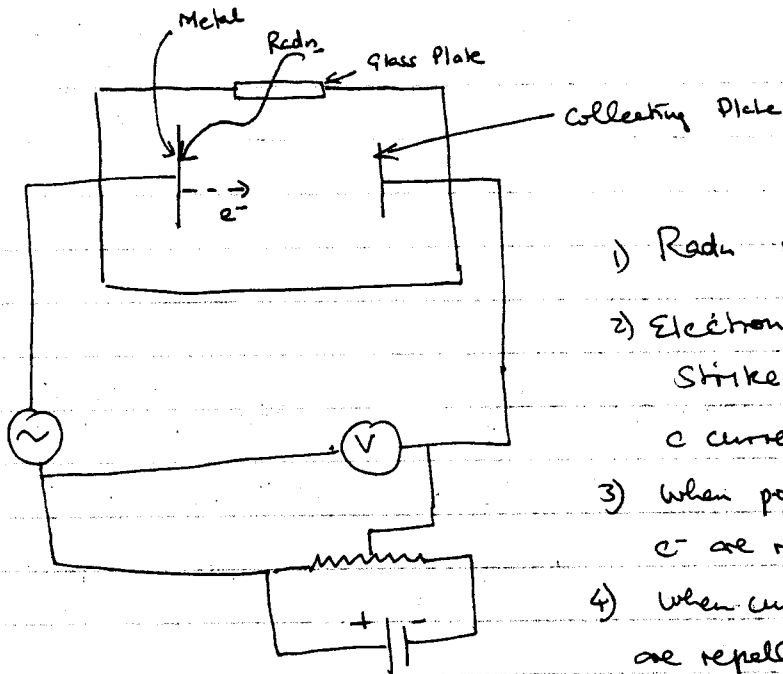 Metal
Radn
Glass Plate
Collecting Plate
e-
1) Radn
2) Electron
Strike
c curre
V
3) when po
e- are r
+ -
4) when cu
are repell